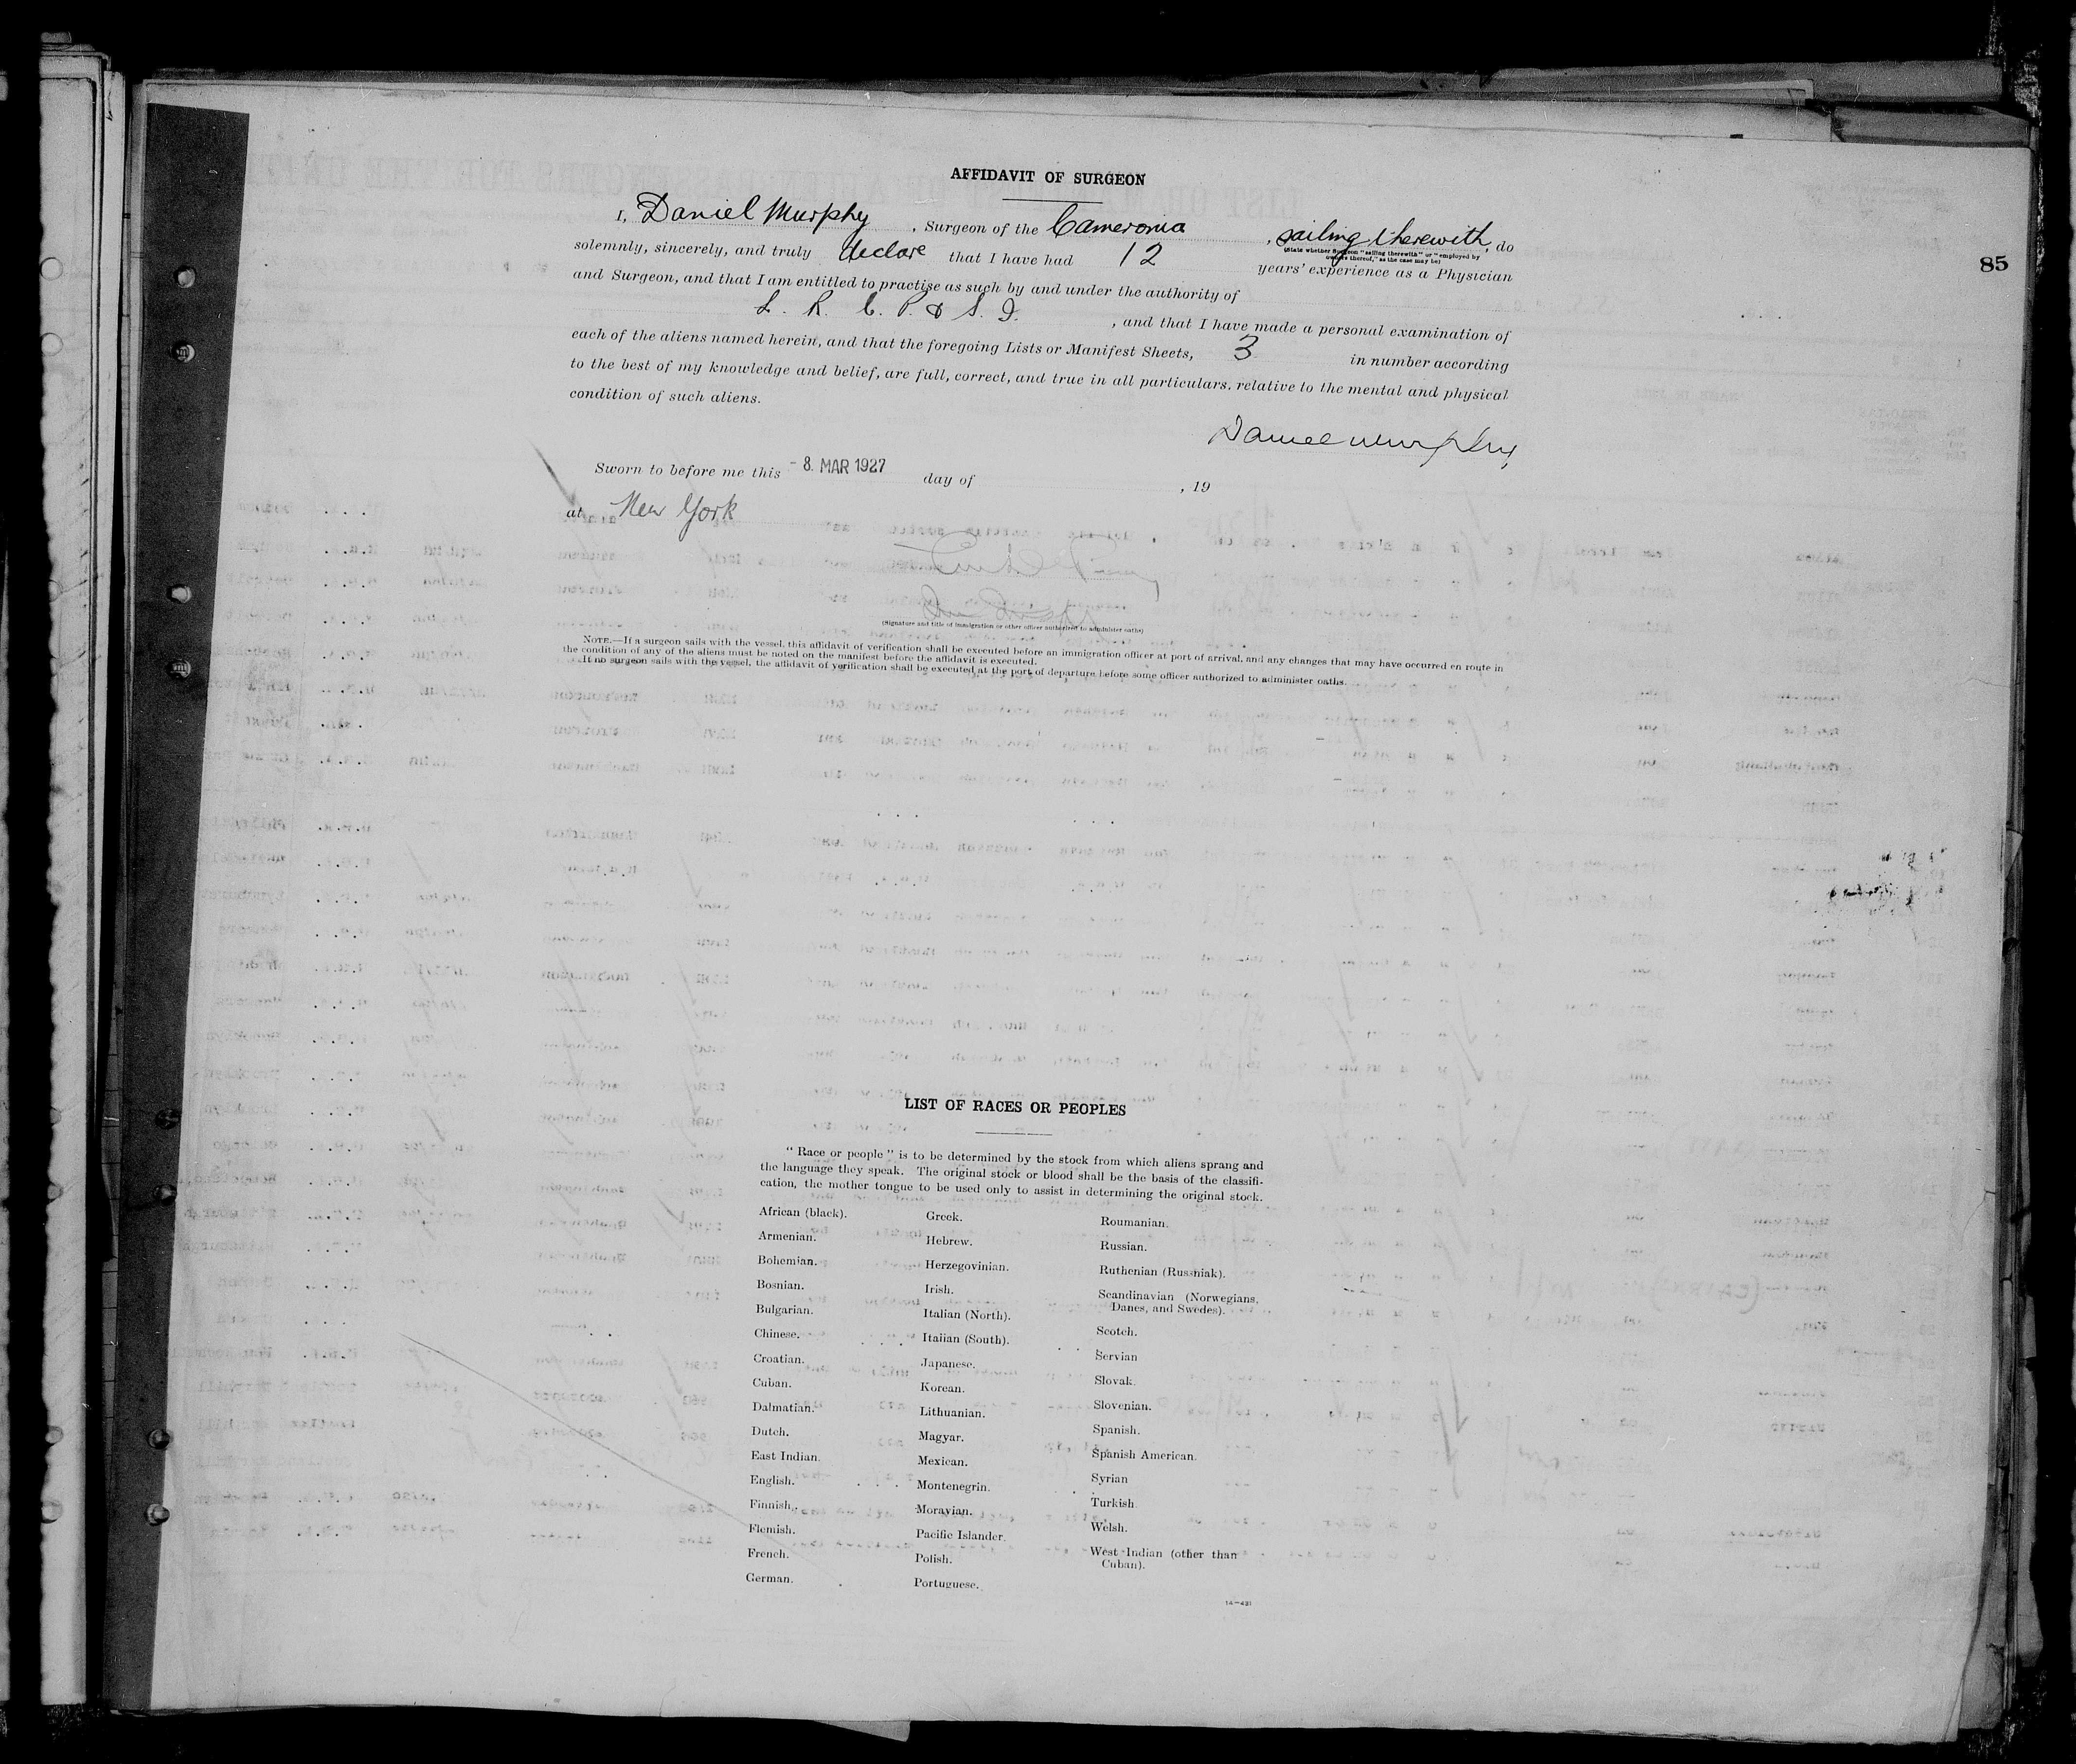 AFFIDAVIT OF SURGEON
I, Daniel Murphy, Surgeon of the Cameronia, sailing therewith, do
(State whether Surgeon "sailing therewith" or "employed by
owners thereof," as the case may be)
solemnly, sincerely, and truly declare that I have had 12 years' experience as a Physician
and Surgeon, and that I am entitled to practise as such by and under the authority of
L. R. C. P. & S. I. , and that I have made a personal examination of
each of the aliens named herein, and that the foregoing Lists or Manifest Sheets, 3 in number according
to the best of my knowledge and belief, are full, correct, and true in all particulars, relative to the mental and physical
condition of such aliens.
Daniel Murphy
Sworn to before me this -8. MAR 1927 day of , 19
at New York
(Signature and title of immigration or other officer authorized to administer oaths)
NOTE.—If a surgeon sails with the vessel, this affidavit of verification shall be executed before an immigration officer at port of arrival, and any changes that may have occurred en route in
the condition of any of the aliens must be noted on the manifest before the affidavit is executed.
If no surgeon sails with the vessel, the affidavit of verification shall be executed at the port of departure before some officer authorized to administer oaths.
85
LIST OF RACES OR PEOPLES
"Race or people" is to be determined by the stock from which aliens sprang and
the language they speak. The original stock or blood shall be the basis of the classifi-
cation, the mother tongue to be used only to assist in determining the original stock.
African (black).
Armenian.
Bohemian.
Bosnian.
Bulgarian.
Chinese.
Croatian.
Cuban.
Dalmatian.
Dutch.
East Indian.
English.
Finnish.
Flemish.
French.
German.
Greek.
Hebrew.
Herzegovinian.
Irish.
Italian (North).
Italian (South).
Japanese.
Korean.
Lithuanian.
Magyar.
Mexican.
Montenegrin.
Moravian.
Pacific Islander.
Polish.
Portuguese.
Roumanian.
Russian.
Ruthenian (Russniak).
Scandinavian (Norwegians,
Danes, and Swedes).
Scotch.
Servian
Slovak.
Slovenian.
Spanish.
Spanish American.
Syrian
Turkish
Welsh.
West Indian (other than
Cuban).
14—421